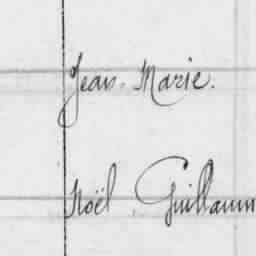 Jean-Marie.
Noël, Guillaum